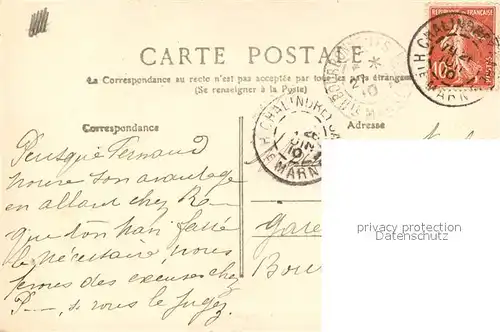 CARTE POSTALE
La Correspondance au recto n'est pas acceptée par tous les pays étrangers
(Se renseigner à la Poste)
RÉPUBLIQUE FRANÇAISE
10
CHALINDREY
Hte MARNE
CHALINDREY
Hte MARNE
Correspondance
Adresse
Puisque Fernand
trouve son avantage
en allant chez R
que ton mari fasse
le nécessaire, nous
ferons des excuses chez
P—, si vous le jugez
Gare
Bou
privacy protection
Datenschutz